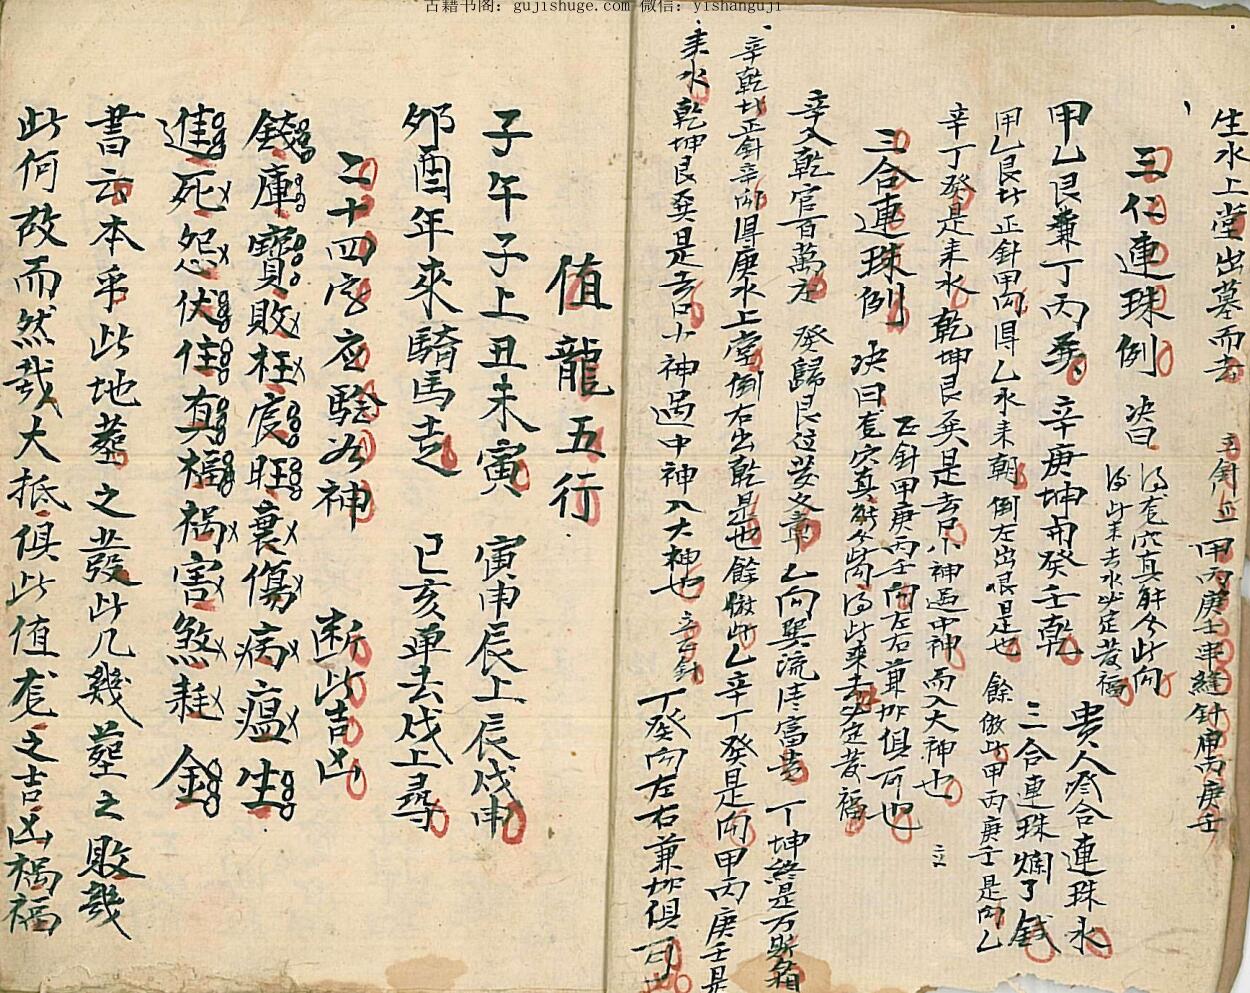 古籍书阁：gujishuge.com 微信：yishanguji
生水上堂出墓而去
甲丙庚壬串縫針甲丙庚壬
三仁連珠例
龙穴真
此向
此来去水必定發福
甲乙艮兼丁丙巽辛庚坤用癸壬乾
貴人叅合連珠水
三合連珠爛了錢
甲乙艮此正針甲向得乙水来朝倒左出艮是也
餘倣此甲丙庚壬是向乙
辛丁癸是耒水乾坤艮巽是去口小神過中神而入大神也
二合連珠例
决曰龙穴真
此来去必定發福
正針甲庚丙壬向左右兼加俱可也
辛入乾宮百萬庄
癸歸艮位發文章
乙向巽流清富貴
丁坤終是万斯箱
辛乾此正針辛向得庚水上堂倒右出乾是也餘倣此乙辛丁癸是向甲丙庚壬是
耒水乾坤艮巽是去口小神過中神入大神也
丁癸向左右兼加俱可
值龍五行
子午子上丑未寅
寅申辰上辰戌申
夘酉年來騎馬走
巳亥單去戌上尋
二十四字应驗如神
断此吉凶
錢庫寶敗枉
旺衰傷病瘟生
進死怨伏住真福禍害煞耗金
書云本乎此地塟之發此几幾塟之敗幾
此何故而然哉大抵俱此值龙之吉凶禍福